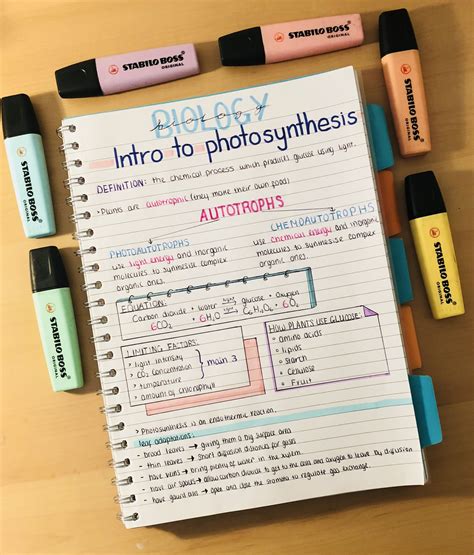 STABILO BOSS
ORIGINAL
STABILO BOSS
ORIGINAL
STABILO BOSS
ORIGINAL
STABILO BOSS
ORIGINAL
STABILO BOSS
ORIGINAL
STABILO BOSS
ORIGINAL
STABILO BOSS
ORIGINAL
BIOLOGY
biology
Intro to photosynthesis
DEFINITION: the chemical process which produces glucose using light.
• Plants are autotrophic (they make their own food)
AUTOTROPHS
PHOTOAUTOTROPHS
use light energy and inorganic
molecules to synthesise complex
organic ones.
CHEMOAUTOTROPHS
use chemical energy and inorganic
molecules to synthesise complex
organic ones.
EQUATION:
Carbon dioxide + water → glucose + Oxygen
6CO2 + 6H2O → C6H12O6 + 6O2
LIMITING FACTORS:
• light intensity
• CO2 concentration
• temperature
• amount of chlorophyll
main 3
HOW PLANTS USE GLUCOSE:
• amino acids
• lipids
• Starch
• Cellulose
• Fruit
• Photosynthesis is an endothermic reaction.
leaf adaptations:
- broad leaves → giving them a big surface area
- thin leaves → Short diffusion distances for gases
- have veins → bring plenty of water in the xylem
- have air spaces → allow carbon dioxide to get to the cells and oxygen to leave by diffusion
- have guard cells → open and close the stomata to regulate gas exchange.